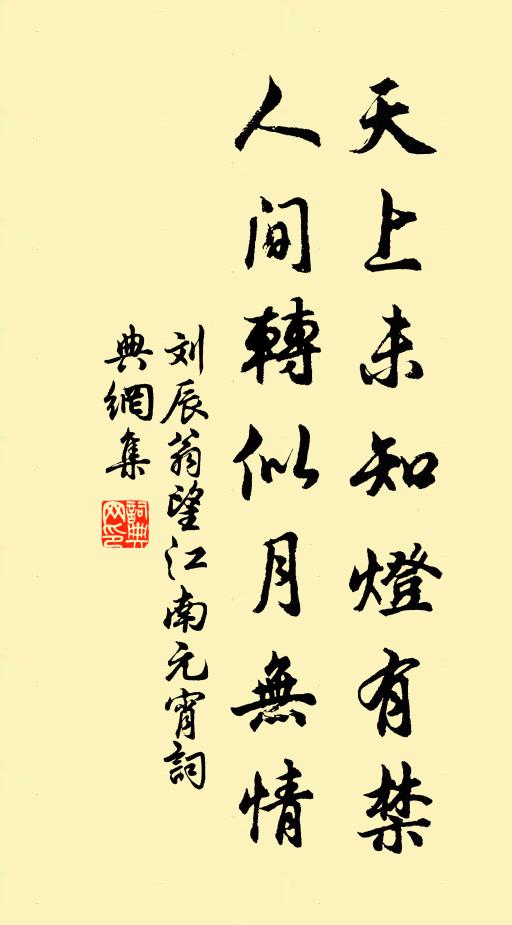 天上未知燈有禁
人間轉似月無情
刘辰翁望江南元宵詞
典網集
詞典
网印